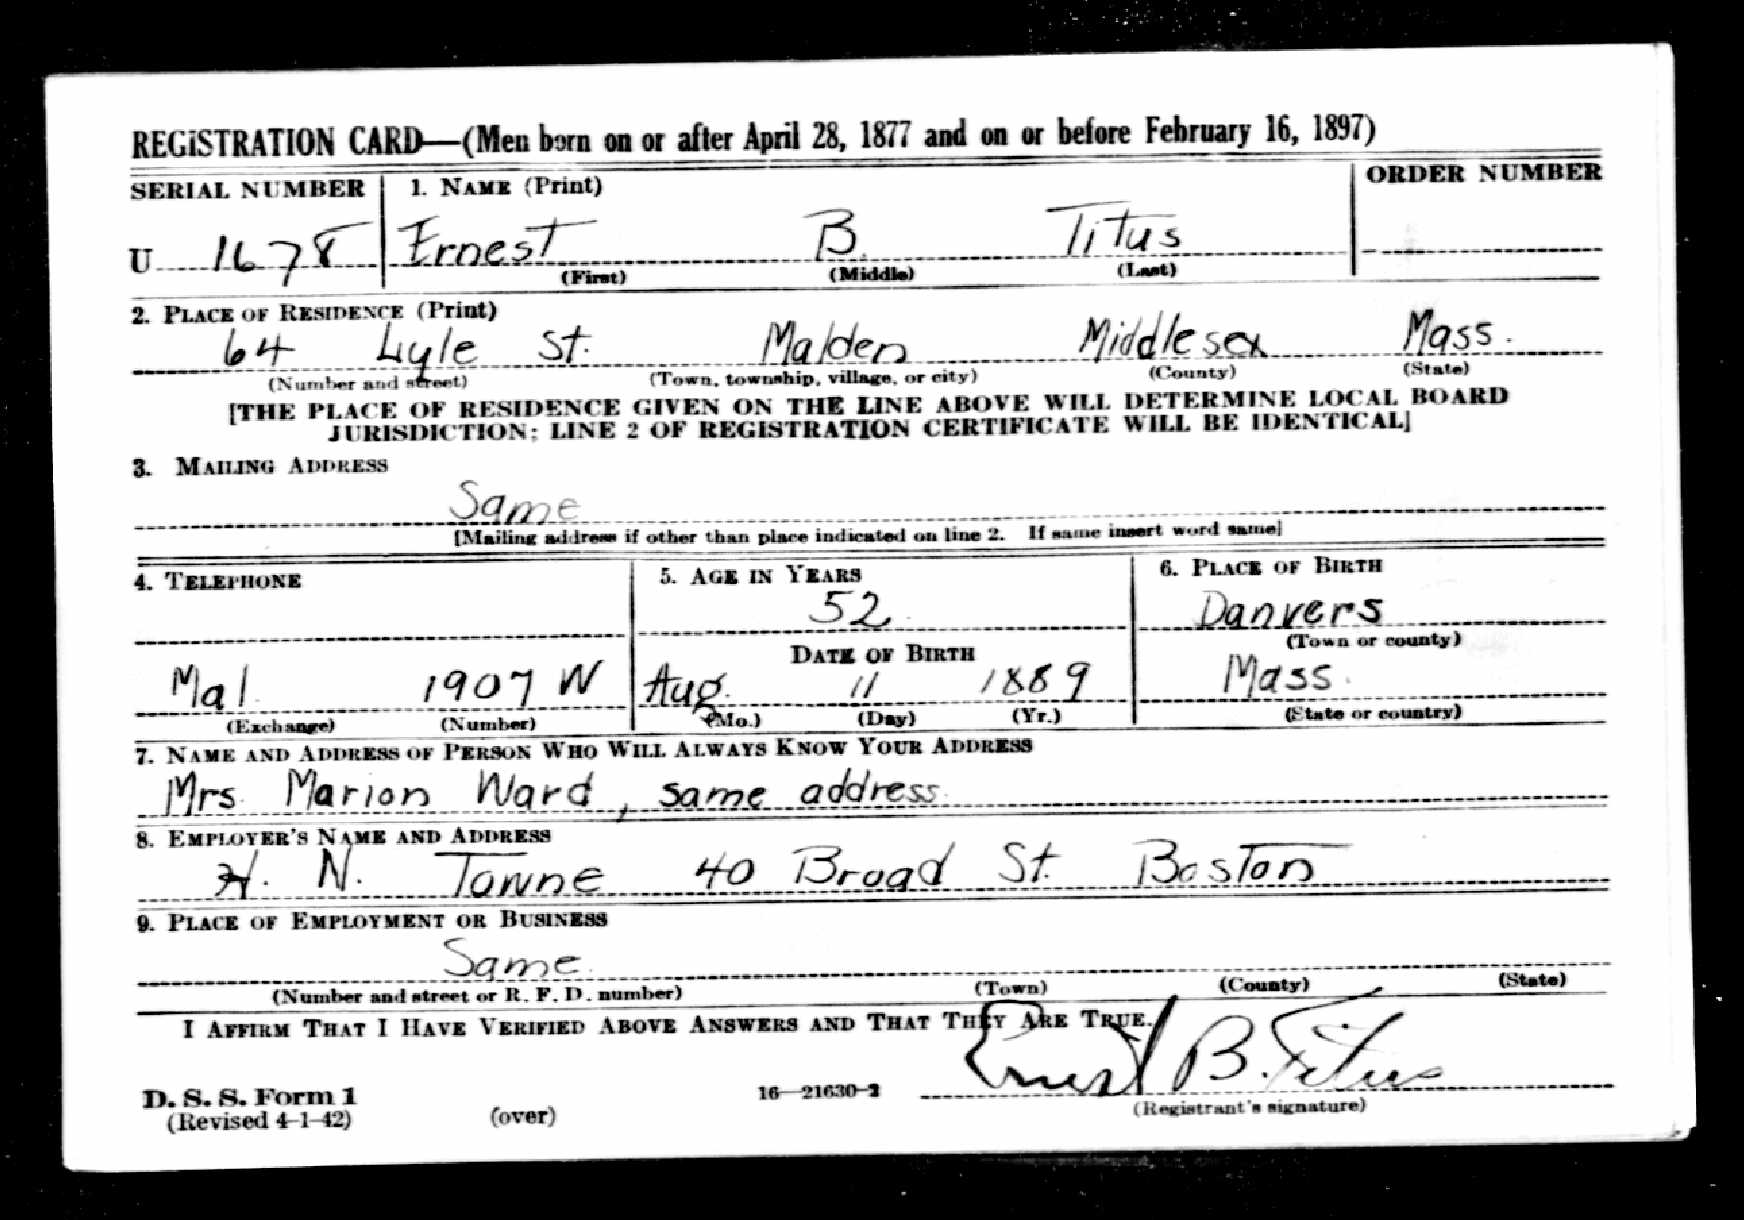 REGISTRATION CARD—(Men born on or after April 28, 1877 and on or before February 16, 1897)
SERIAL NUMBER 1. NAME (Print) ORDER NUMBER
U 1678 Ernest B. Titus
(First) (Middle) (Last)
2. PLACE OF RESIDENCE (Print)
64 Lyle St. Malden Middlesex Mass.
(Number and street) (Town, township, village, or city) (County) (State)
[THE PLACE OF RESIDENCE GIVEN ON THE LINE ABOVE WILL DETERMINE LOCAL BOARD
JURISDICTION; LINE 2 OF REGISTRATION CERTIFICATE WILL BE IDENTICAL]
3. MAILING ADDRESS
Same
[Mailing address if other than place indicated on line 2. If same insert word same]
4. TELEPHONE 5. AGE IN YEARS 6. PLACE OF BIRTH
52 Danvers
(Town or county)
DATE OF BIRTH
Mal. 1907 W Aug. 11 1889 Mass.
(Exchange) (Number) (Mo.) (Day) (Yr.) (State or country)
7. NAME AND ADDRESS OF PERSON WHO WILL ALWAYS KNOW YOUR ADDRESS
Mrs. Marion Ward, same address.
8. EMPLOYER'S NAME AND ADDRESS
H. N. Towne 40 Broad St. Boston
9. PLACE OF EMPLOYMENT OR BUSINESS
Same.
(Number and street or R. F. D. number) (Town) (County) (State)
I AFFIRM THAT I HAVE VERIFIED ABOVE ANSWERS AND THAT THEY ARE TRUE.
Ernest B. Titus
D. S. S. Form 1 16—21630-2
(Revised 4-1-42) (over) (Registrant's signature)